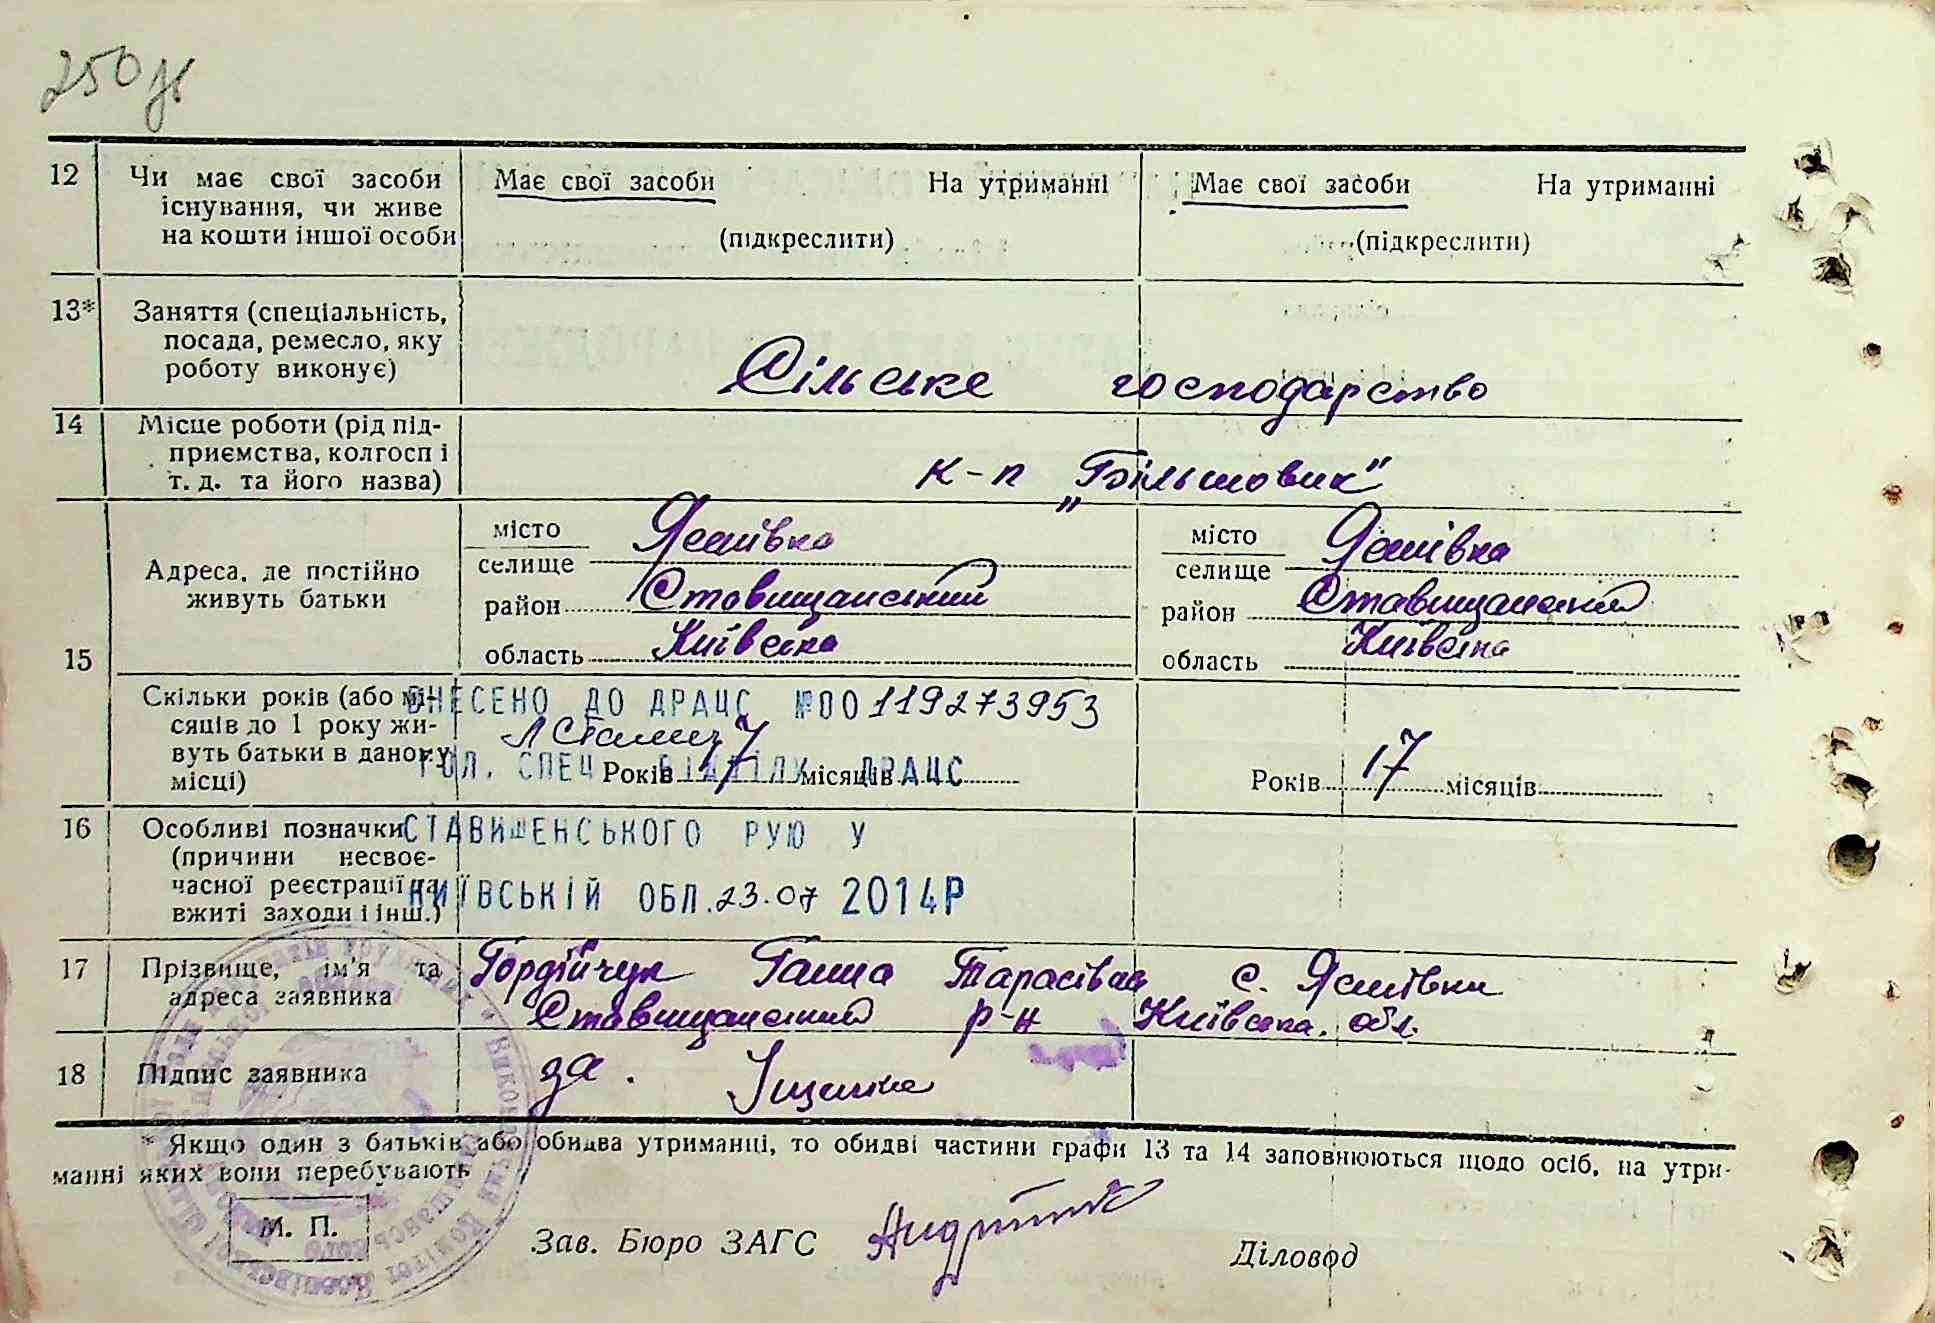 250
12 Чи має свої засоби існування, чи живе на кошти іншої особи
Має свої засоби На утриманні
(підкреслити)
Має свої засоби На утриманні
(підкреслити)
13* Заняття (спеціальність, посада, ремесло, яку роботу виконує)
Сільське господарство
14 Місце роботи (рід підприємства, колгосп і т. д. та його назва)
к-п „Більшовик"
15 Адреса, де постійно живуть батьки
місто
селище
район Ставищанський
область Київська
місто
селище
район Ставищанський
область Київська
Скільки років (або місяців до 1 року живуть батьки в даному місці)
ВНЕСЕНО ДО ДРАЦС №00119273953
Років 17 місяців
Років 17 місяців
ГОЛ. СПЕЦ ВІДДІЛУ ДРАЦС
16 Особливі позначки (причини несвоєчасної реєстрації та вжиті заходи і інш.)
СТАВИЩЕНСЬКОГО РУЮ У
КИЇВСЬКІЙ ОБЛ. 23.07 2014Р
17 Прізвище, ім'я та адреса заявника
Гордійчук Ганна Тарасівна с.
Ставищанський р-н Київська обл.
18 Підпис заявника
за.
* Якщо один з батьків або обидва утриманці, то обидві частини графи 13 та 14 заповнюються щодо осіб, на утри-
манні яких вони перебувають
М. П.
Зав. Бюро ЗАГС
Діловод